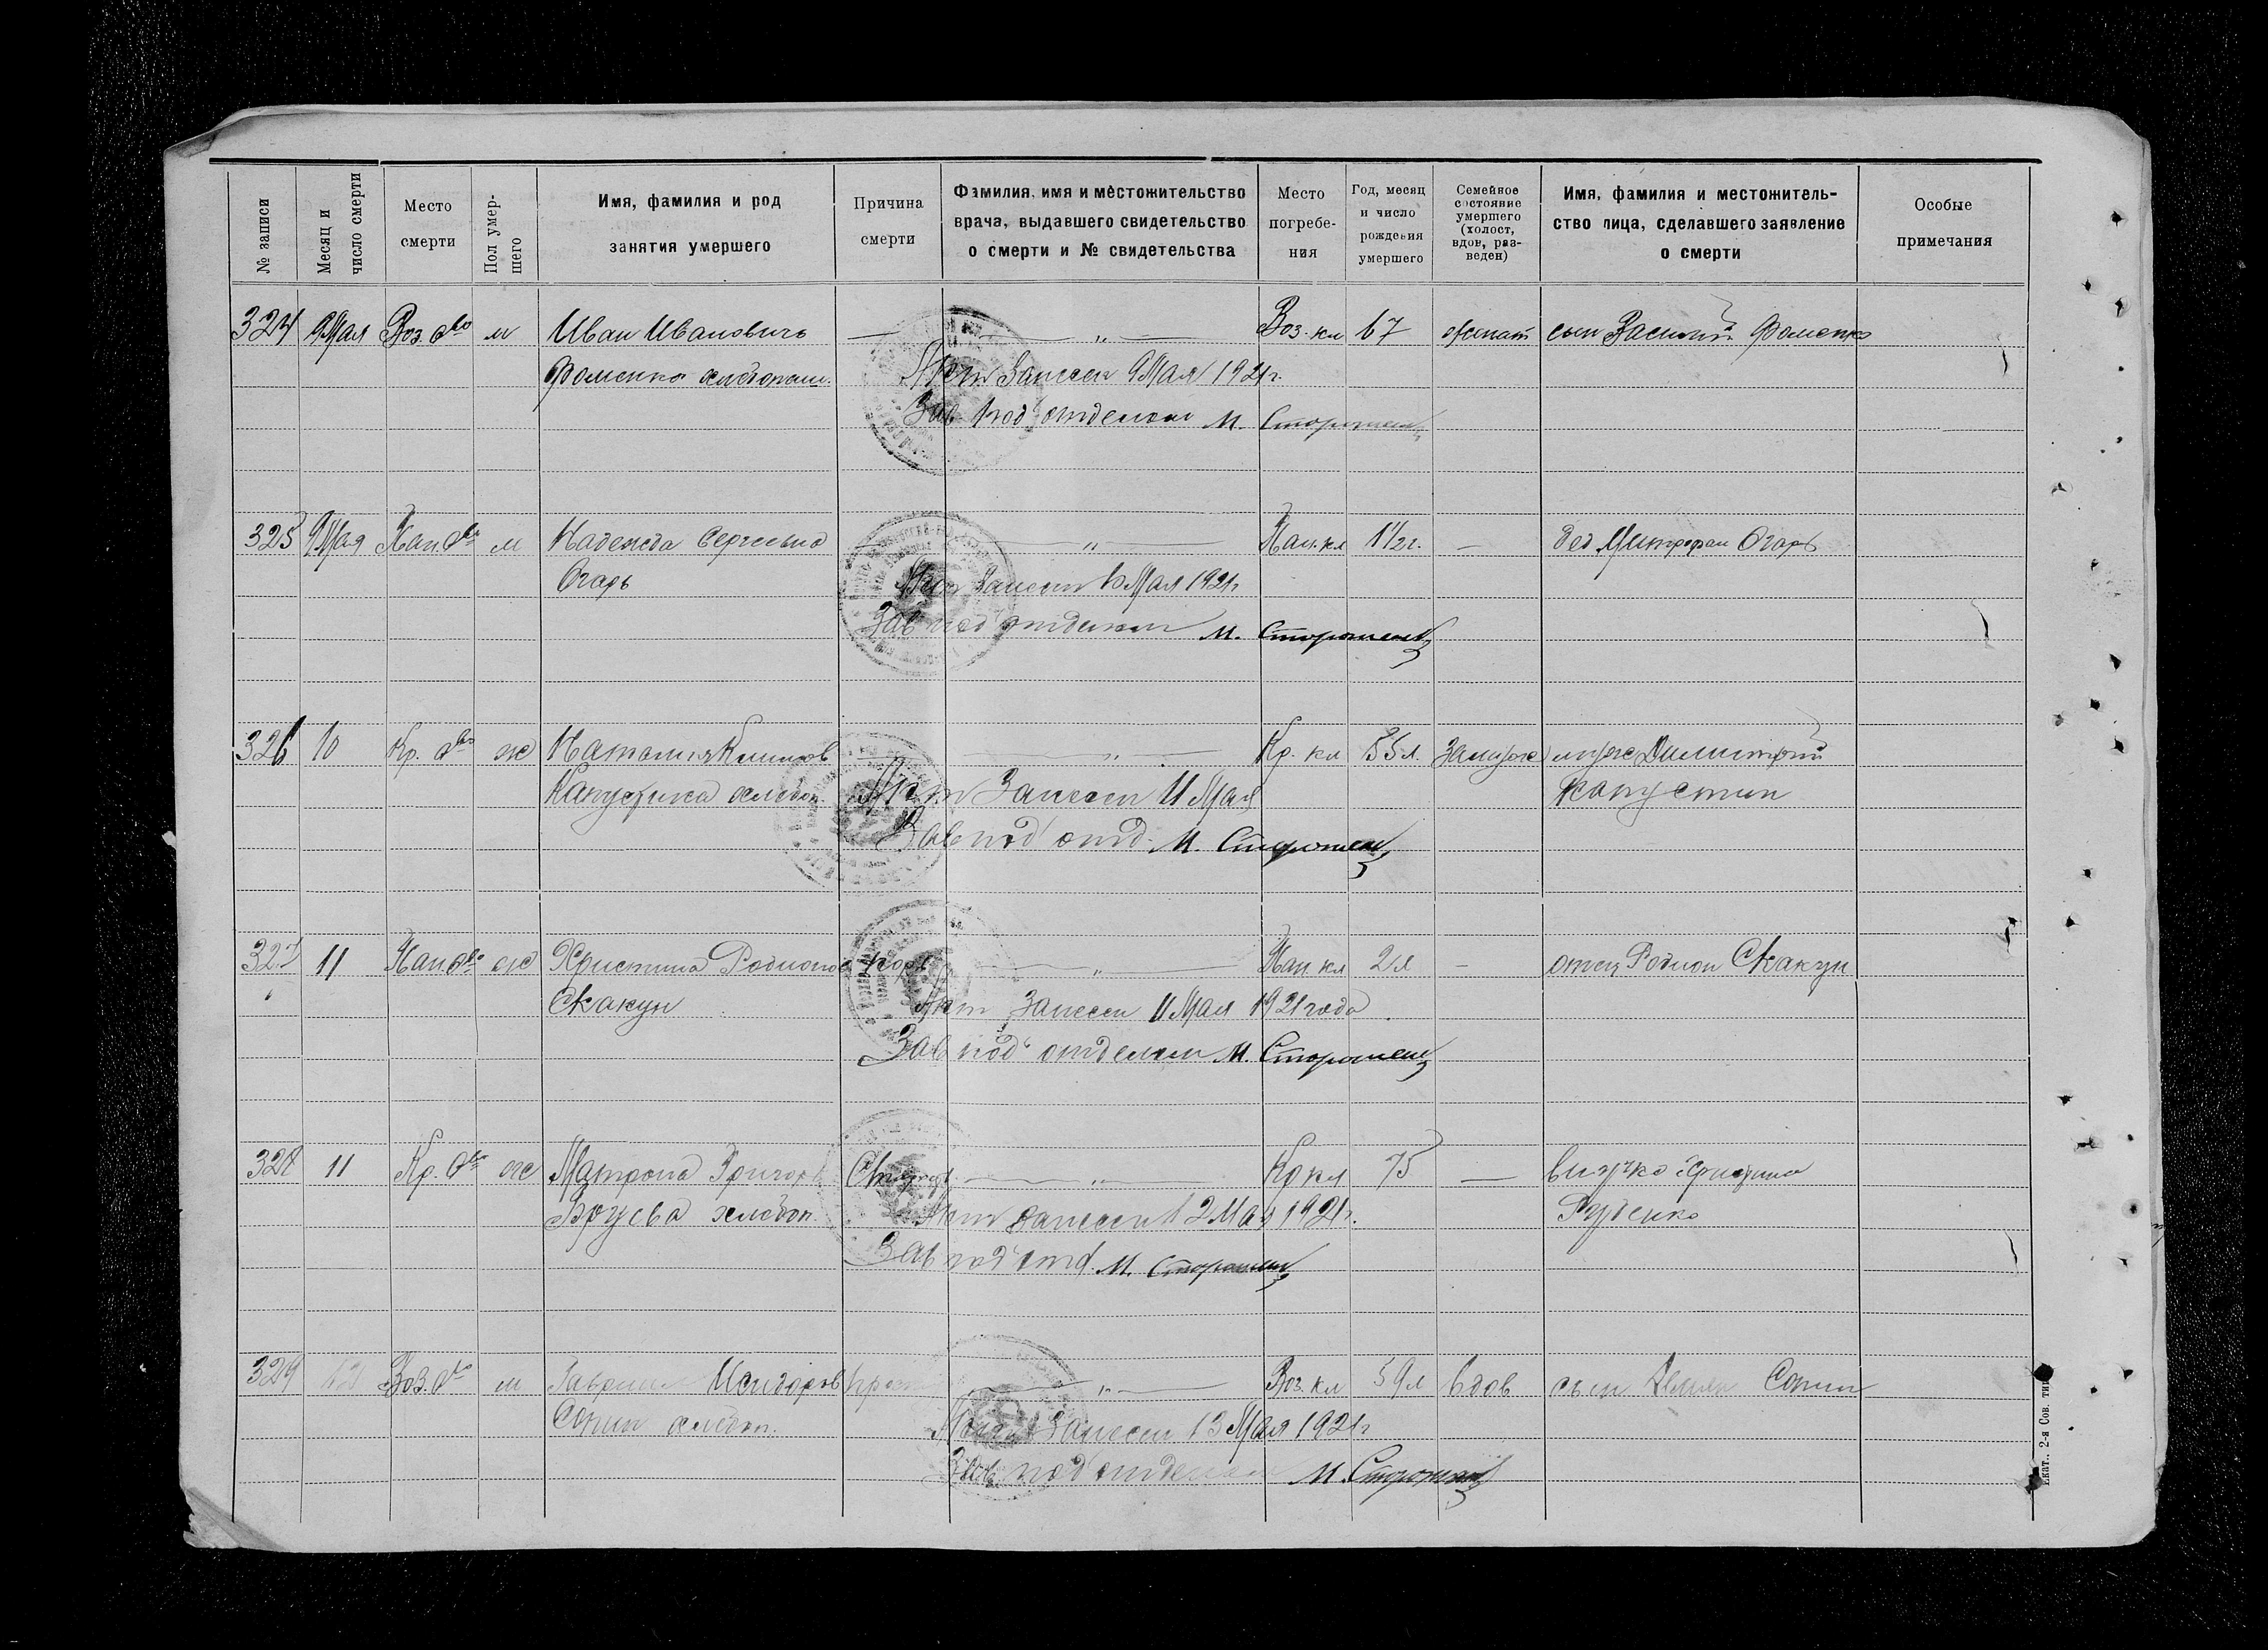 № записи
Месяц и число смерти
Место смерти
Пол умер- шего
Имя, фамилия и род занятия умершего
Причина смерти
Фамилия, имя и местожительство врача, выдавшего свидетельство о смерти и № свидетельства
Место погребе- ния
Год, месяц и число рождения умершего
Семейное состояние умершего (холост, вдов, раз- веден)
Имя, фамилия и местожитель- ство лица, сделавшего заявление о смерти
Особые примечания
324 9 Мая Воз. м Иван Ивановичъ — „ — Воз. кл 67 женат сын Василий Фоменко
Фоменко хлебопаш. Акт Занесен 9 Мая 1921 г.
Зав под отделом М. Стороженко
325 9 Мая м Надежда Сергеевна — „ — 1 1/2 г. — дед Митрофан Огарь
Огарь Акт Занесен 10 Мая 1921 г
Зав под отделом М. Стороженко
326 10 Кр. ж Наталия Климов — „ — Кр. кл 55 л. Замуж муж Димитрий
Капустина хлебоп. Акт Занесен 11 Мая Капустин
Зав под отд. М. Стороженко
327 11 ж Христина Родионов — „ — 2 л — отец Родион Скакун
Скакун Акт Занесен 11 Мая 1921 года
Зав под отделом М. Стороженко
328 11 Кр. ж Матрона Григор — „ — Кр кл 75 — внучка
хлебоп. Акт занесен 12 Мая 1921 г. Руденко
Зав под отд. М. Стороженко
329 12 Воз. м Гаврил Исидоров — „ — Воз. кл 59 л вдов сын Демьян Сопин
Сопин хлебоп. Акт Занесен 13 Мая 1921 г
Зав. под отделом М. Стороженко
Екат., 2-я Сов. тип.